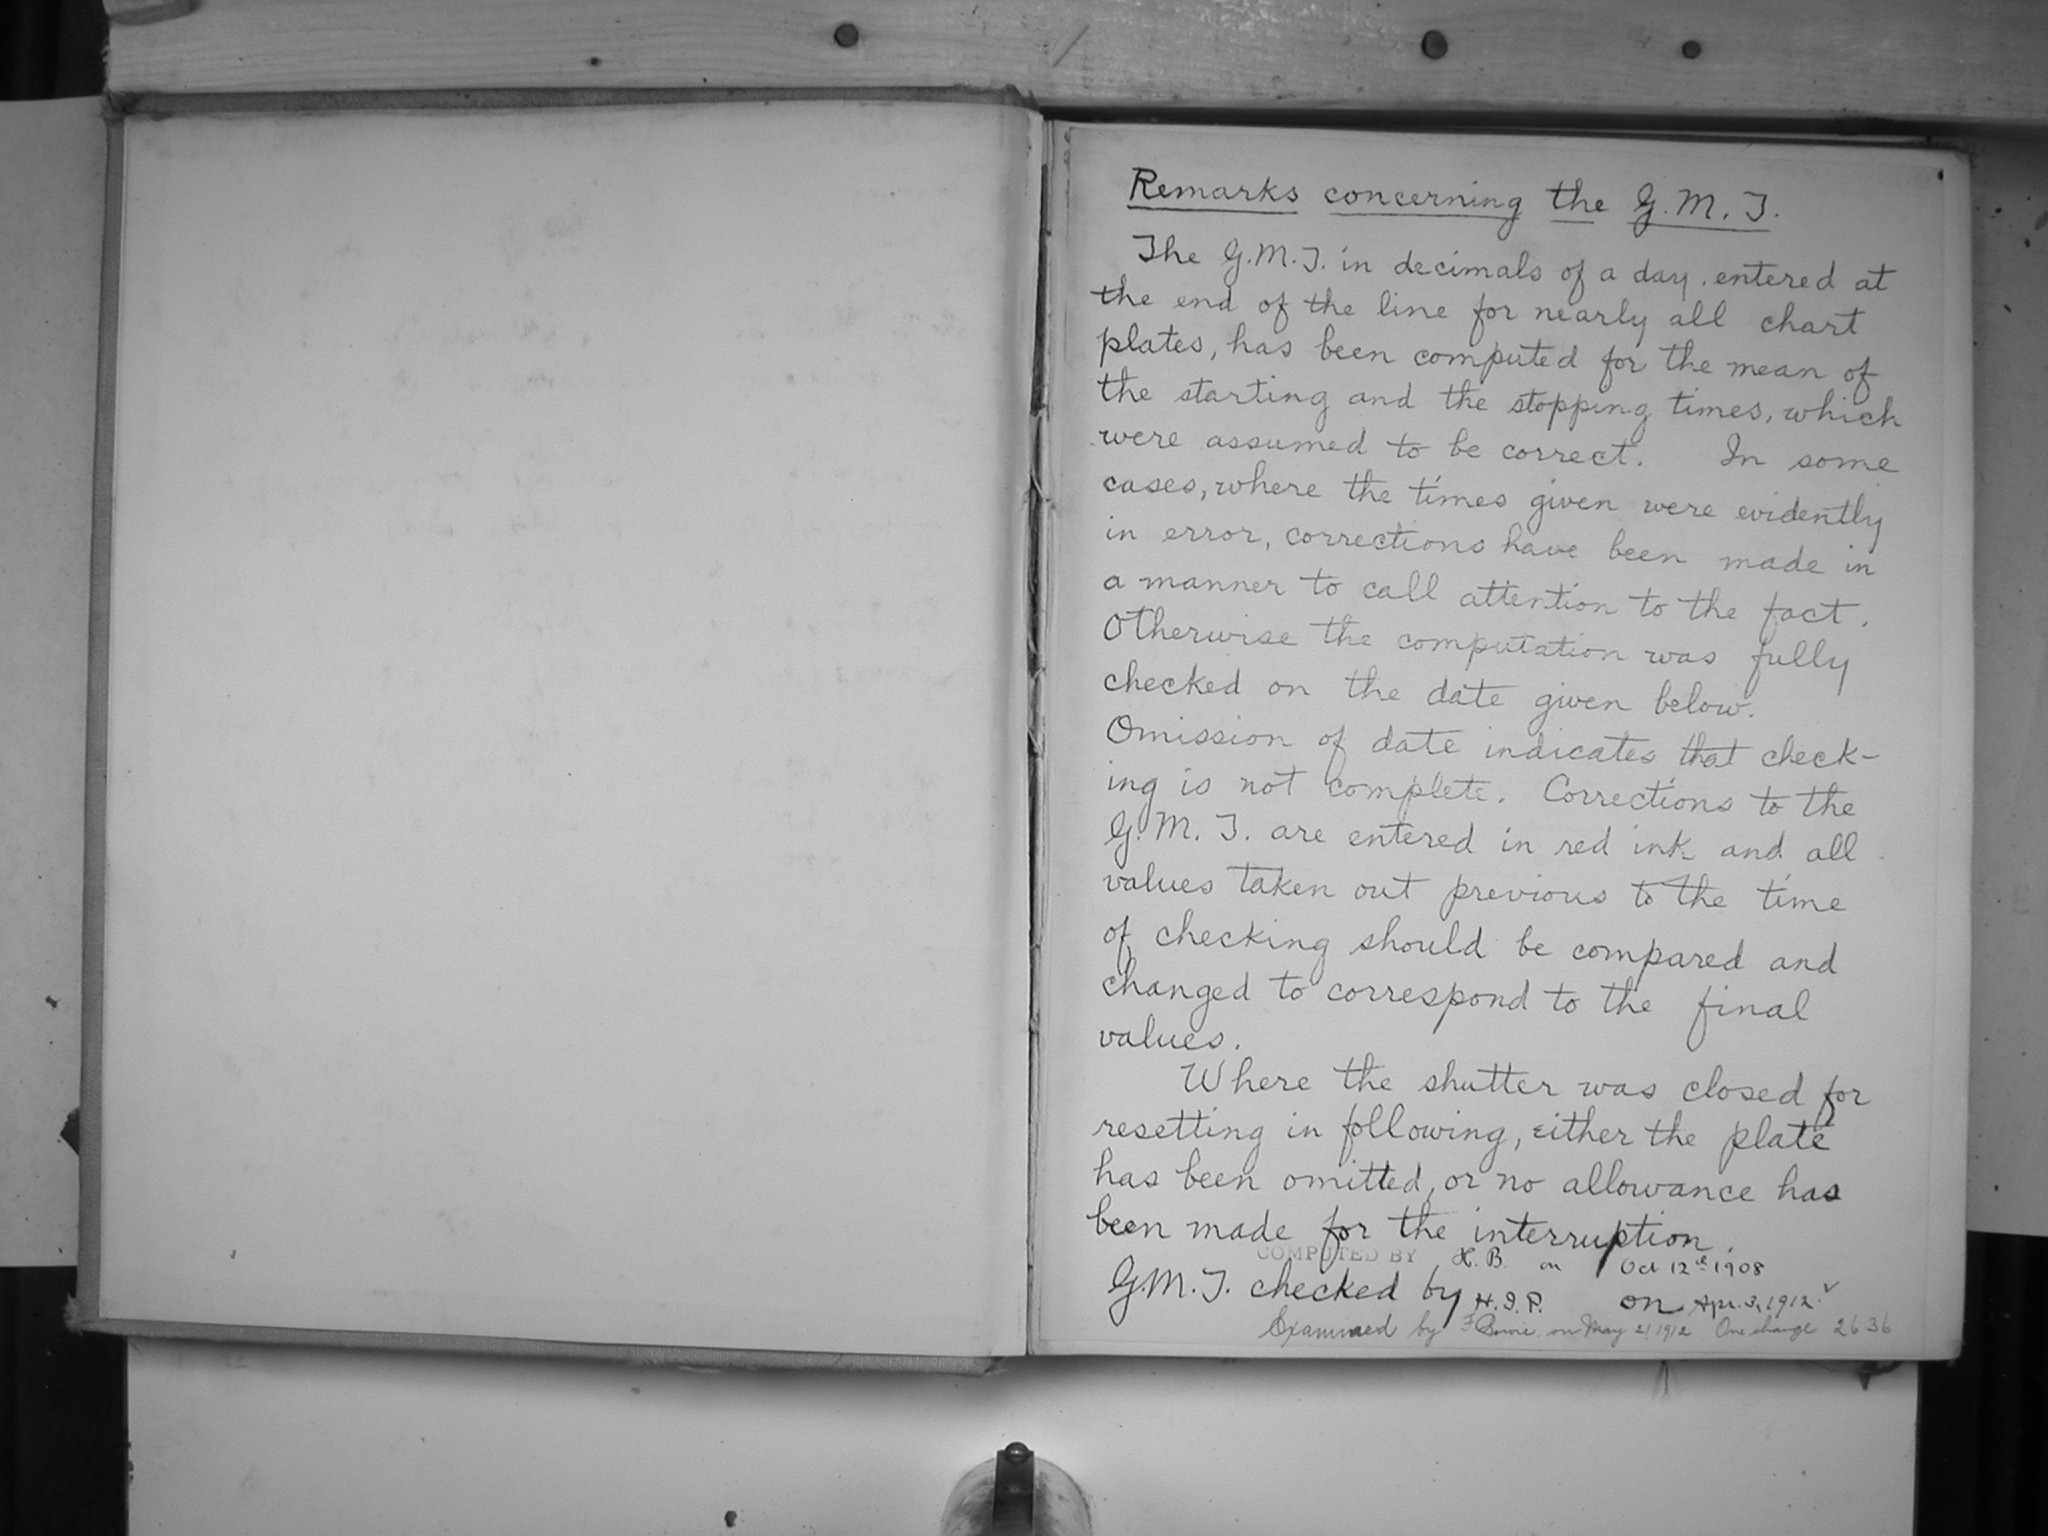 Remarks concerning the G.M.T.
The G.M.T. in decimals of a day, entered at
the end of the line for nearly all chart
plates, has been computed for the mean of
the starting and the stopping times, which
were assumed to be correct. In some
cases, where the times given were evidently
in error, corrections have been made in
a manner to call attention to the fact.
Otherwise the computation was fully
checked on the date given below.
Omission of date indicates that check-
ing is not complete. Corrections to the
G.M.T. are entered in red ink and all
values taken out previous to the time
of checking should be compared and
changed to correspond to the final
values.
Where the shutter was closed for
resetting in following, either the plate
has been omitted, or no allowance has
been made for the interruption.
COMPUTED BY H.B. on Oct 12th 1908
G.M.T. checked by H.I.P. on Apr. 3, 1912. ✓
Examined by on May 21 1912 One change 2636